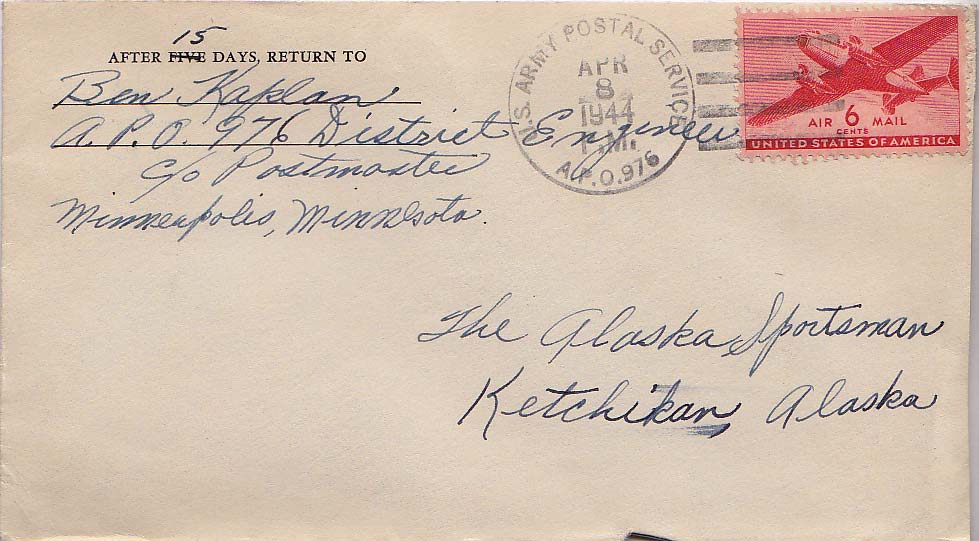 15
AFTER FIVE DAYS, RETURN TO
Ben Kaplan
A.P.O. 976 District Engineer
c/o Postmaster
Minneapolis, Minnesota.
U.S. ARMY POSTAL SERVICE
APR
8
1944
P.M.
A.P.O. 976
AIR 6 MAIL
CENTS
UNITED STATES OF AMERICA
The Alaska Sportsman
Ketchikan, Alaska